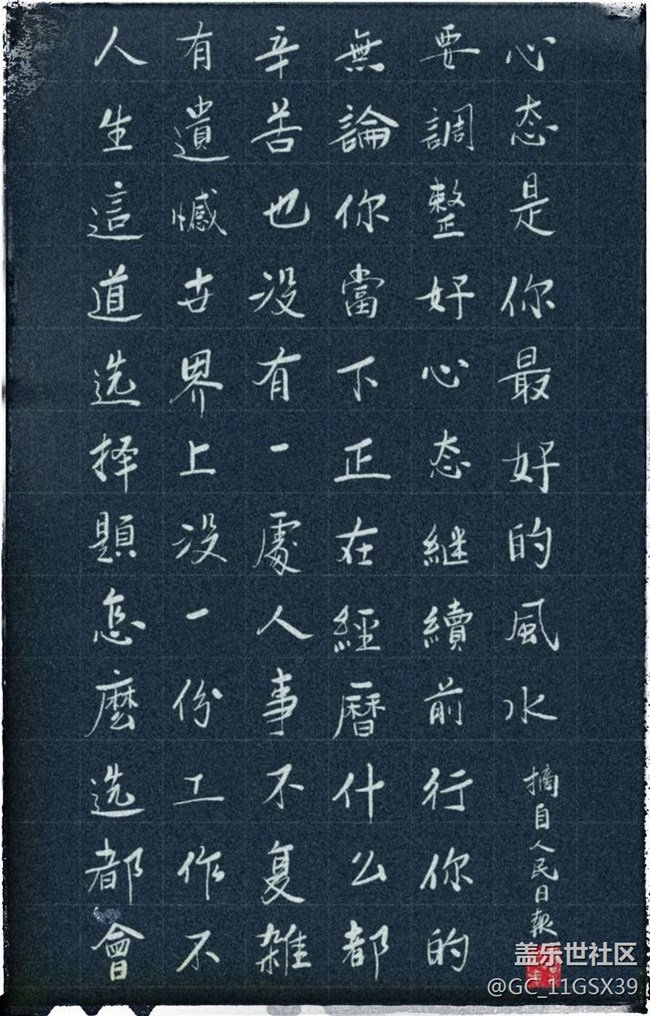 人生這道选择題怎麼选都會
有遺憾世界上没一份工作不
辛苦也没有一處人事不复雜
無論你當下正在經曆什么都
要調整好心态継續前行你的
心态是你最好的風水
摘自人民日報
盖乐世社区
@GC_11GSX39